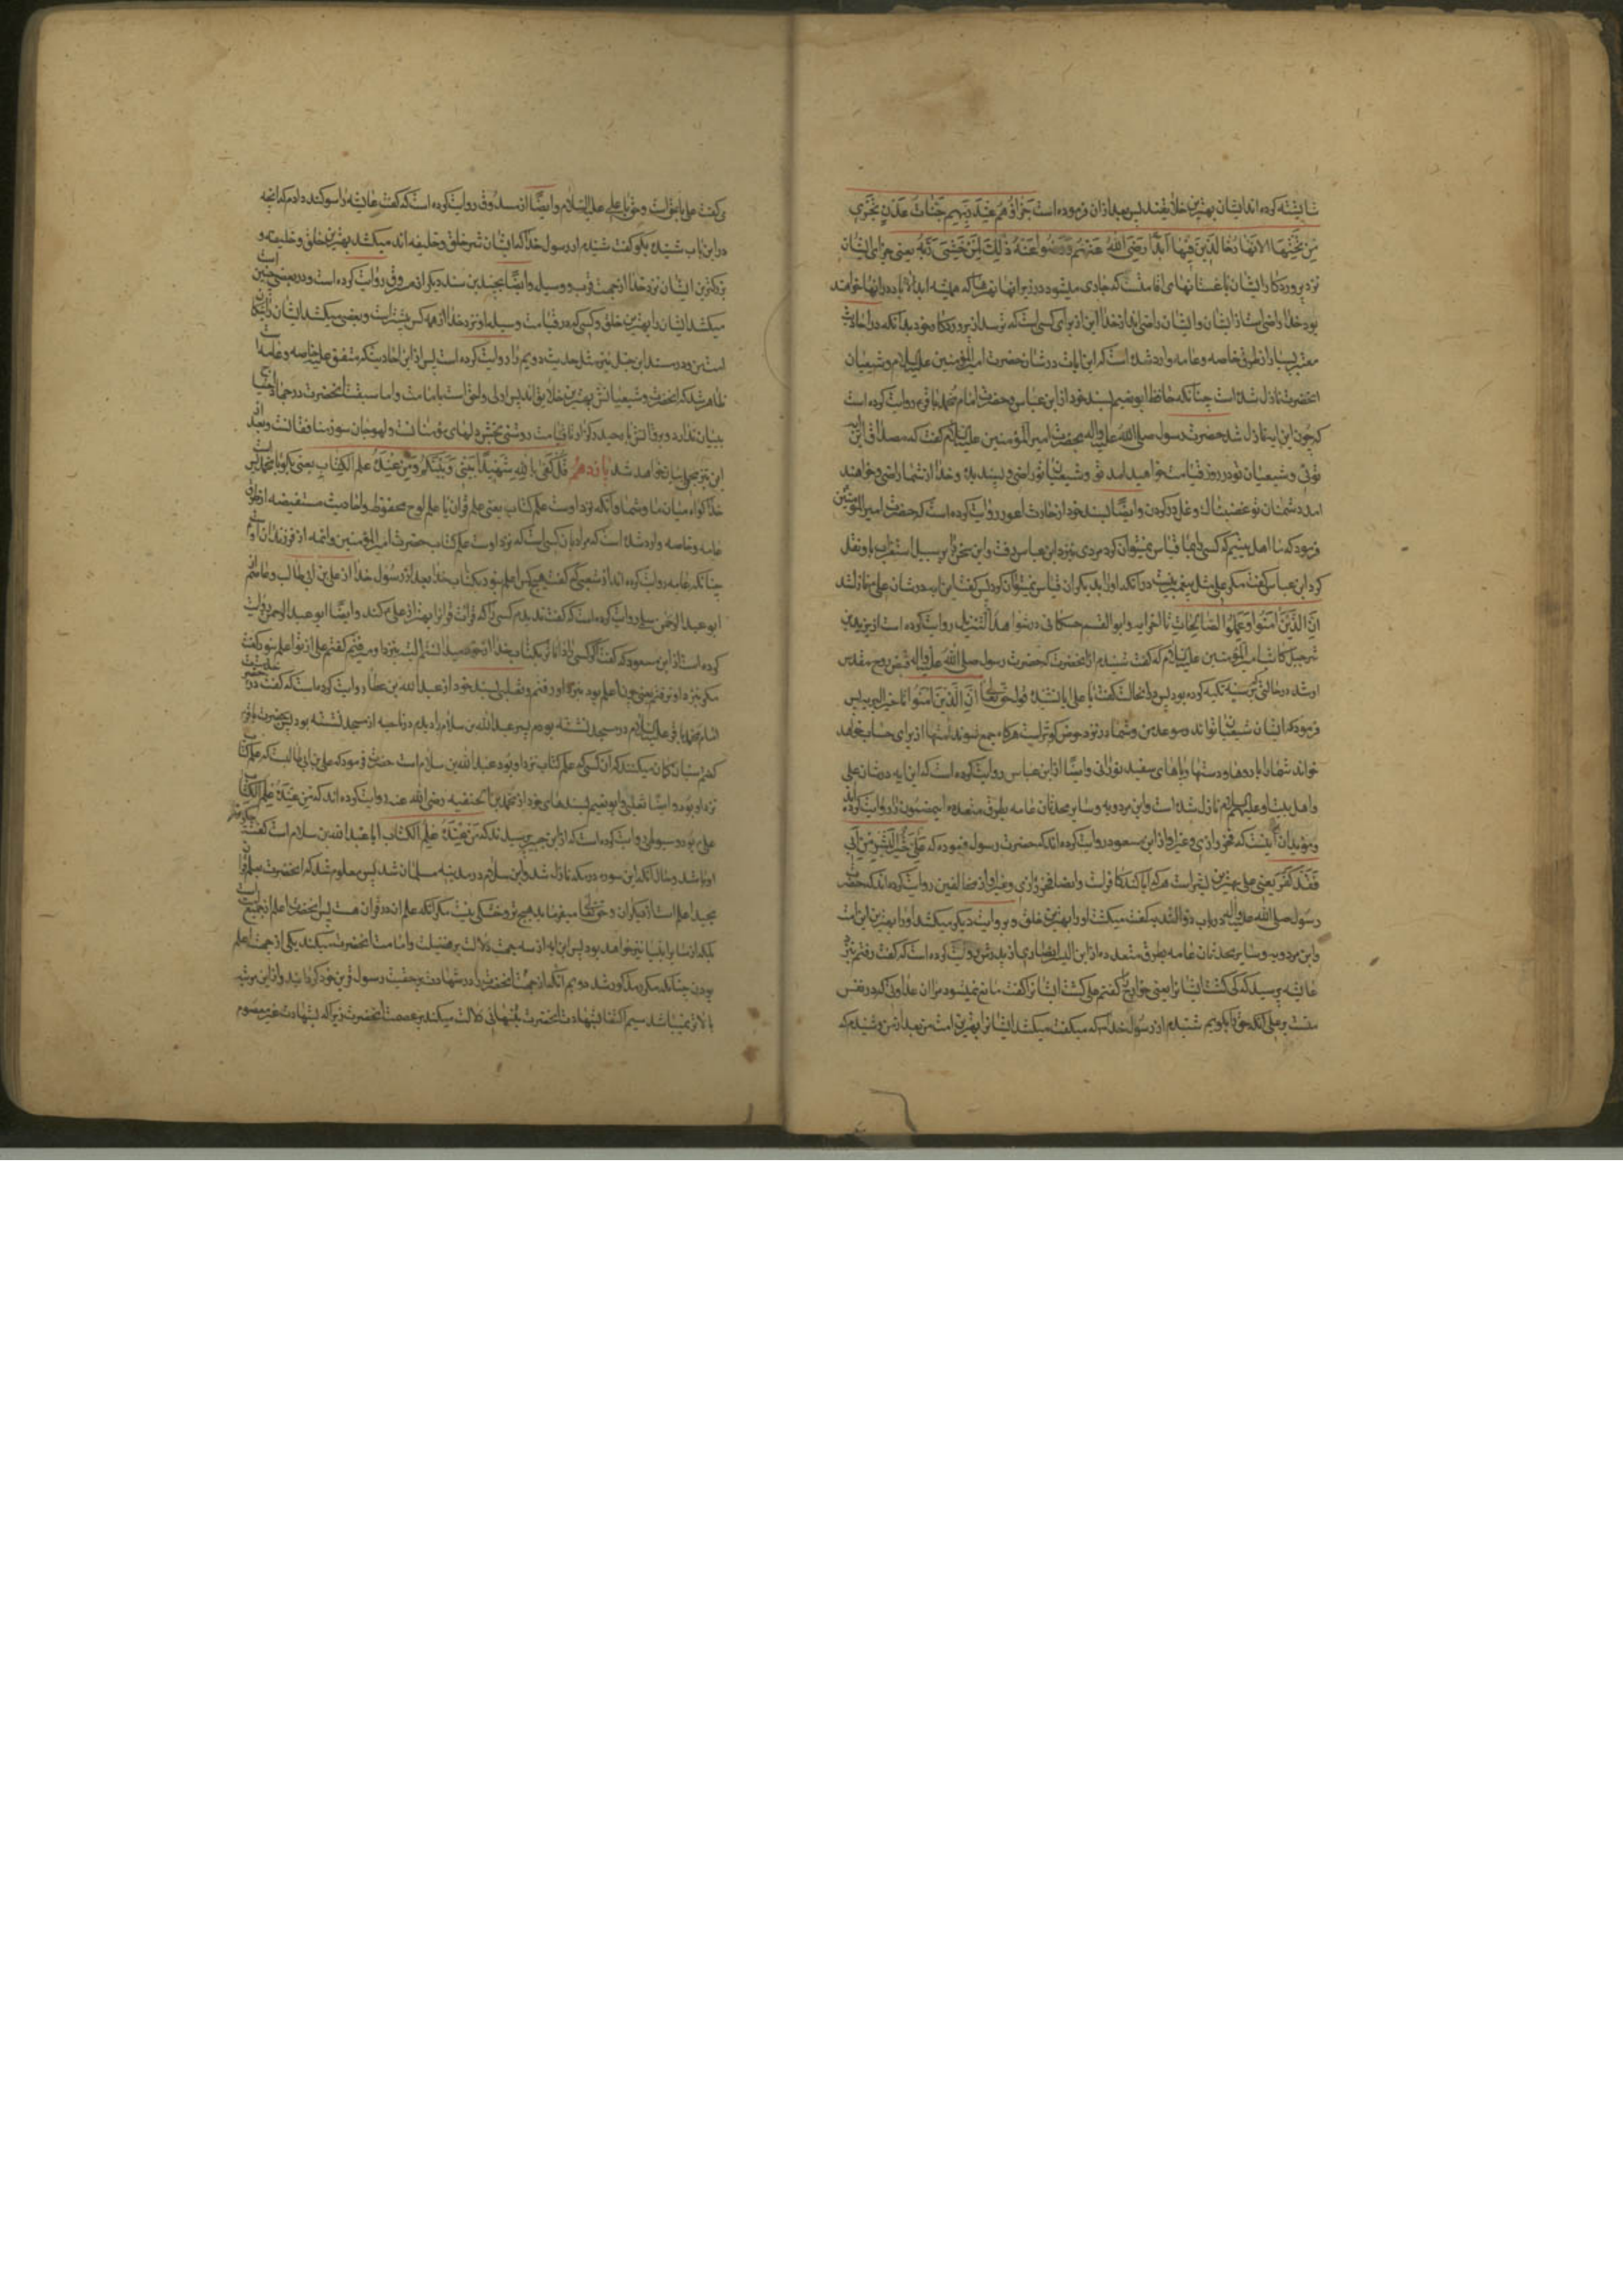 شایسته کرده‌اند ایشان بهترین خلایقند پس بعد از ان فرموده است جَزَاؤُهُمْ عِنْدَ رَبِّهِمْ جَنَّاتُ عَدْنٍ تَجْرِي
مِنْ تَحْتِهَا الْاَنْهَارُ خَالِدِينَ فِيهَا اَبَدًا رَضِيَ اللهُ عَنْهُمْ وَرَضُوا عَنْهُ ذٰلِكَ لِمَنْ خَشِيَ رَبَّهُ یعنی جزای ایشان
نزد پروردکار ایشان باغستانهای اقامتست که جاری میشود در زیر انها نهرها که همیشه ابدالاباد در انها خواهند
بود خدا راضیست از ایشان و ایشان راضی‌اند از خدا این از برای کسی است که بترسد از پروردکار خود بدانکه در احادیث
معتبر بسیار از طرق خاصه و عامه وارد شده است که این ایات در شان حضرت امیر المؤمنین علیه السلام و شیعیان
انحضرت نازل شده است چنانکه حافظ ابو نعیم بسند خود از ابن عباس و حضرت امام محمد باقرم روایت کرده است
که چون این ایه نازل شد حضرت رسول صلی الله علیه واله بحضرت امیر المؤمنین علیه السلام گفت که مصداق این ایه
توئی و شیعیان تو در روز قیامت خواهید امد تو و شیعیان تو راضی و پسندیده و خدا از شما راضی و خواهند
امد دشمنان تو غضبناک و غل در کردن و ایضًا بسند خود از حارث اعور روایت کرده است که حضرت امیر المؤمنین
فرمود که ما اهل بیتیم که کسی را بما قیاس نمیتوان کرد مردی بنزد ابن عباس رفت و این سخن را بر سبیل استغراب باو نقل
کرد ابن عباس گفت مکر علی مثل پیغمبر نیست در انکه او را بدیکران قیاس نمیتوان کرد پس گفت این ایه در شان علی ع نازل شد
اِنَّ الَّذِينَ اٰمَنُوا وَعَمِلُوا الصَّالِحَاتِ تا اخر ایه و ابو القسم حسکانی در شواهد التنزیل روایت کرده است از یزید بن
شرحبیل کاتب امیر المؤمنین علیه السلام که گفت شنیدم از انحضرت که حضرت رسول صلی الله علیه واله قبض روح مقدس
او شد در حالتی که بر سینه من تکیه کرده بود پس در انحالت گفت یا علی ایا نشنیده قول حق تعالی را اِنَّ الَّذِينَ اٰمَنُوا تا خیر البریه پس
فرمود که ایشان شیعیان تواند و موعد من و شما در نزد حوض کوثر است هرکاه جمع شوند امتها از برای حساب خواهند
خواند شما را با روها و دستها و پاهای سفید نورانی و ایضًا از ابن عباس روایت کرده است که این ایه در شان علی
و اهل بیت او علیهم السلام نازل شده است و ابن مردویه و سایر محدثان عامه بطرق متعدده این مضمون را روایت کرده‌اند
و مؤید ان انست که فخر رازی و غیر او از ابن مسعود روایت کرده‌اند که حضرت رسول فرموده که عَلِيٌّ خَيْرُ الْبَشَرِ مَنْ اَبَى
فَقَدْ كَفَرَ یعنی علی بهترین بشر است هرکه ابا کند کافر است و ایضا فخر رازی و غیر او از مخالفین روایت کرده‌اند که حضرت
رسول صلی الله علیه واله در باب ذو الثدیه گفت میکشد او را بهترین خلق و بروایت دیکر میکشد او را بهترین این امت
و ابن مردویه و سایر محدثان عامه بطرق متعدده از ابن الیسار انصاری از پدرش روایت کرده است که گفت رفتم نزد
عایشه پرسید که کی کشت ایشانرا یعنی خوارج را گفتم علی کشت ایشانرا گفت مانع نمیشود مرا ان عداوتی که در نفس
منست بر علی انکه حق را بکویم شنیدم از رسول خدا که میکفت میکشد ایشانرا بهترین امت من بعد از من و شنیدم که
میکفت علی با حق است و حق با علی علیه السلام و ایضًا از مسروق روایت کرده است که گفت عایشه را سوکند دادم که انچه
در این باب شنیده بکو گفت شنیدم از رسول خدا که ایشان شر خلق و خلیفه‌اند میکشد بهترین خلق و خلیفه و
نزدکترین ایشان نزد خدا از جهت قرب و وسیله و ایضًا بچندین سند دیکر از مسروق روایت کرده است و در بعضی چنین است
میکشد ایشان را بهترین خلق و کسی که در قیامت وسیله او نزد خدا از همه کس بیشتر است و بعضی میکشد ایشان را نیکان
امت من و در مسند ابن حنبل نیز مثل حدیث دویم را روایت کرده است پس از این احادیث که متفق علیه خاصه و عامه است
ظاهر شد که انحضرت و شیعیانش بهترین خلایق‌اند پس اولی و احق است بامامت و اما سبقت انحضرت در جهاد احتیاج
ببیان ندارد و برق تیغش تا روز قیامت روشنی بخش دلهای مؤمنان و جان سوز منافقانست و بعد از
این نیز مجملی بیان خواهد شد پانزدهم قُلْ كَفَى بِاللهِ شَهِيدًا بَيْنِي وَبَيْنَكُمْ وَمَنْ عِنْدَهُ عِلْمُ الْكِتَابِ یعنی بکو یا محمد بس است
خدا کواه میان ما و شما و انکه نزد اوست علم کتاب یعنی علم قران یا علم لوح محفوظ و احادیث مستفیضه از طرق
عامه و خاصه وارد شده است که مراد بان کسی است که نزد اوست علم کتاب حضرت امیر المؤمنین و ائمه از فرزندان او
چنانکه عامه روایت کرده‌اند از شعبی که گفت هیچکس اعلم نبود بکتاب خدا بعد از رسول خدا از علی بن ابی طالب و عاصم از
ابو عبد الرحمن سلمی روایت کرده است که گفت ندیدم کسی را که قرائت قران را بهتر از علی ع کند و ایضًا ابو عبد الرحمن روایت
کرده است از ابن مسعود که گفت اکر کسی را داناتر بکتاب خدا از خود میدانستم البته بنزد او میرفتم گفتم علی از تو اعلم نبود گفت
مکر بنزد او نرفتم یعنی چون اعلم بود بنزد او رفتم و ثعلبی بسند خود از عبد الله بن عطا روایت کرده است که گفت در خدمت حضرت
امام محمد باقر علیه السلام در مسجد نشسته بودم پسر عبد الله بن سلام را دیدم در ناحیه از مسجد نشسته بود پس بحضرت باقرم
گفتم سنیان کمان میکنند که ان کسی که علم کتاب نزد او بود عبد الله بن سلام است حضرت فرمود که علی بن ابی طالبست که علم کتاب
نزد او بود و ایضا ثعلبی و ابو نعیم بسندهای خود از محمد بن الحنفیه رضی الله عنه روایت کرده‌اند که مَنْ عِنْدَهُ عِلْمُ الْكِتَابِ
علی بود و سیوطی روایت کرده است که از ابن جبیر پرسیدند که مَنْ عِنْدَهُ عِلْمُ الْكِتَابِ ایا عبد الله بن سلام است گفت چکونه
او باشد و حال انکه این سوره در مکه نازل شد و ابن سلام در مدینه مسلمان شد پس معلوم شد که انحضرت بعلم قران
مجید اعلم است از دیکران و حق تعالی میفرماید هیچ تر و خشکی نیست مکر انکه علم ان در قران هست پس انحضرت اعلم از جمیع امت
بلکه از سایر انبیا نیز خواهد بود پس این ایه از سه جهت دلالت بر فضیلت و امامت انحضرت میکند یکی از جهت اعلم
بودن چنانکه مکرر مذکور شد دویم انکه از جهت انکه انحضرت را در شهادت بر حقیت رسول قرین خود کردانید و از این مرتبه
بالاتر نمیباشد سیم اکتفا بشهادت انحضرت بتنهائی دلالت میکند بر عصمت انحضرت زیرا که بشهادت غیر معصوم